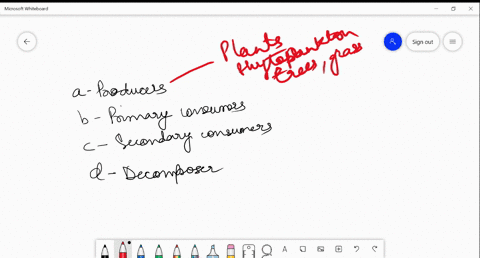 Microsoft Whiteboard
Sign out
Plants
Phytoplankton
trees, grass
a - Producers
b - Primary consumers
c - Secondary consumers
d - Decomposer